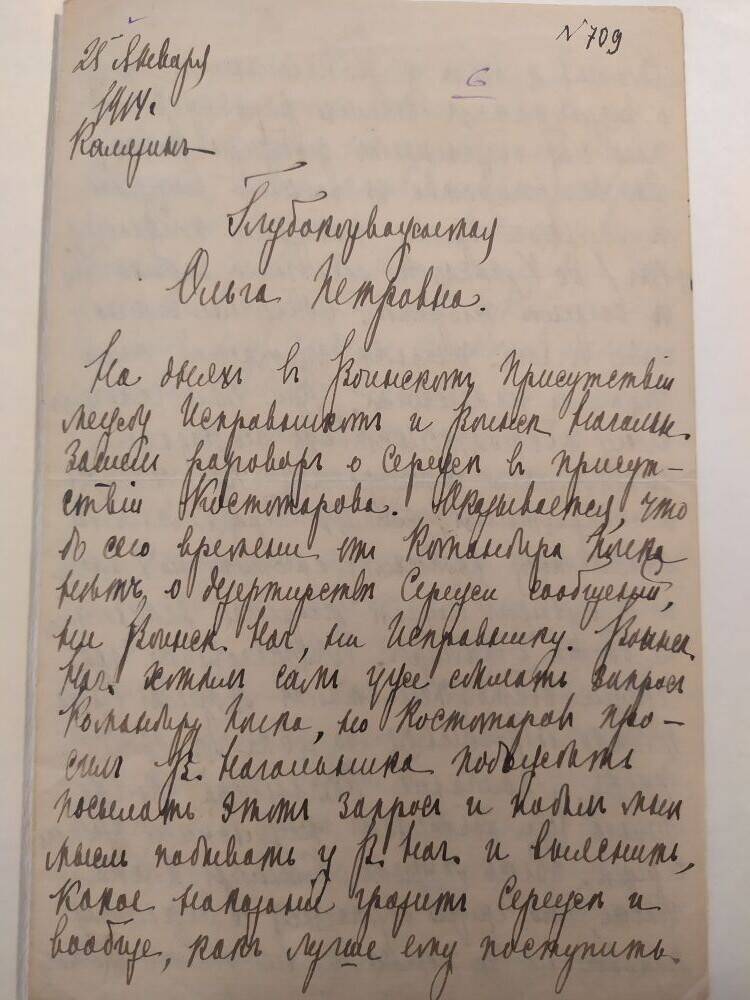 N 709
6
25 Января
1914.
Калязинъ
Глубокоуважаемая
Ольга Петровна.
На дняхъ въ Воинскомъ Присутствіи
между Исправникомъ и Воинск. Начальн.
зашелъ разговоръ о Сережѣ въ присут-
ствіи Костомарова. Оказывается, что
до сего времени отъ Командира Полка
нѣтъ о дезертирствѣ Сережи сообщеній,
ни Воинск. Нач., ни Исправнику. Воинск.
Нач. хотѣлъ самъ уже сдѣлать запросъ
Командиру Полка, но Костомаровъ про-
силъ В. Начальника подождать
посылать этотъ запросъ и подалъ мнѣ
мысль побывать у В. Нач. и выяснить,
какое наказаніе грозитъ Сережѣ и
вообще, какъ лучше ему поступить.